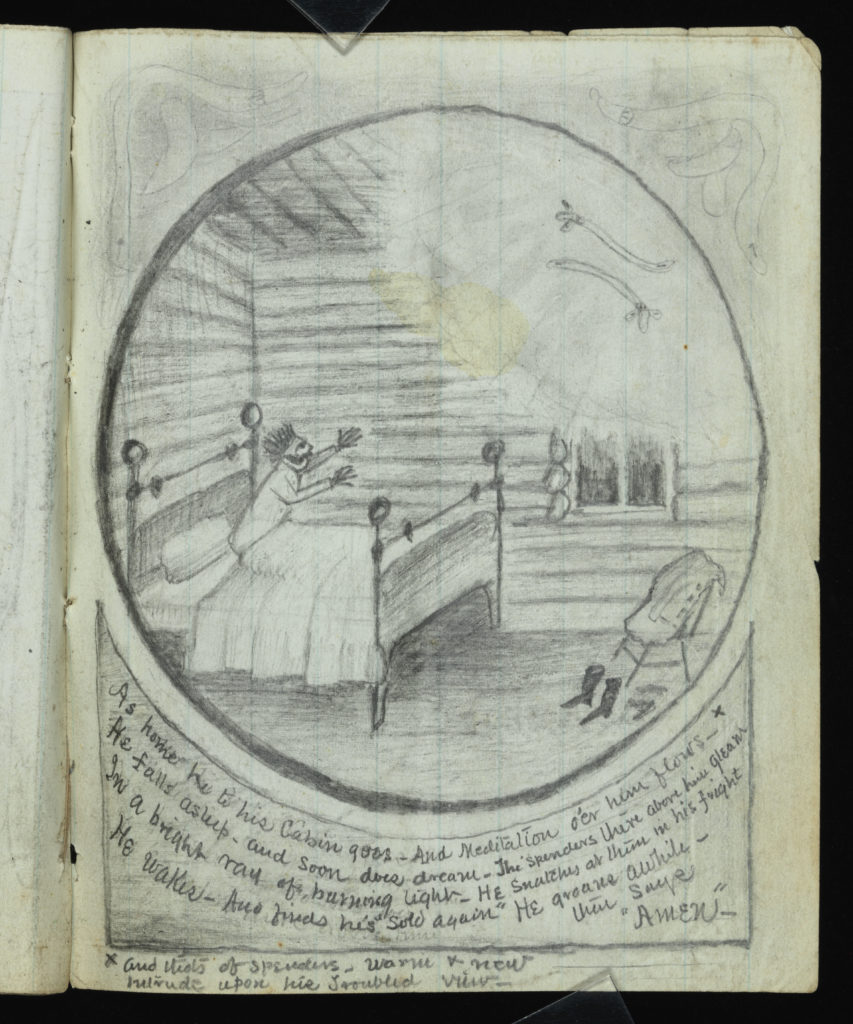 As home he to his Cabin goes - And Meditation o'er him flows - x
He falls asleep - and soon does dream - The spenders there above him gleam
In a bright ray of burning light - He Snatches at them in his fright
He wakes - And finds he's "Sold again" He groans awhile -
then says
"AMEN" -
x and of spenders - warm & new
Intrude upon his Troubled view -